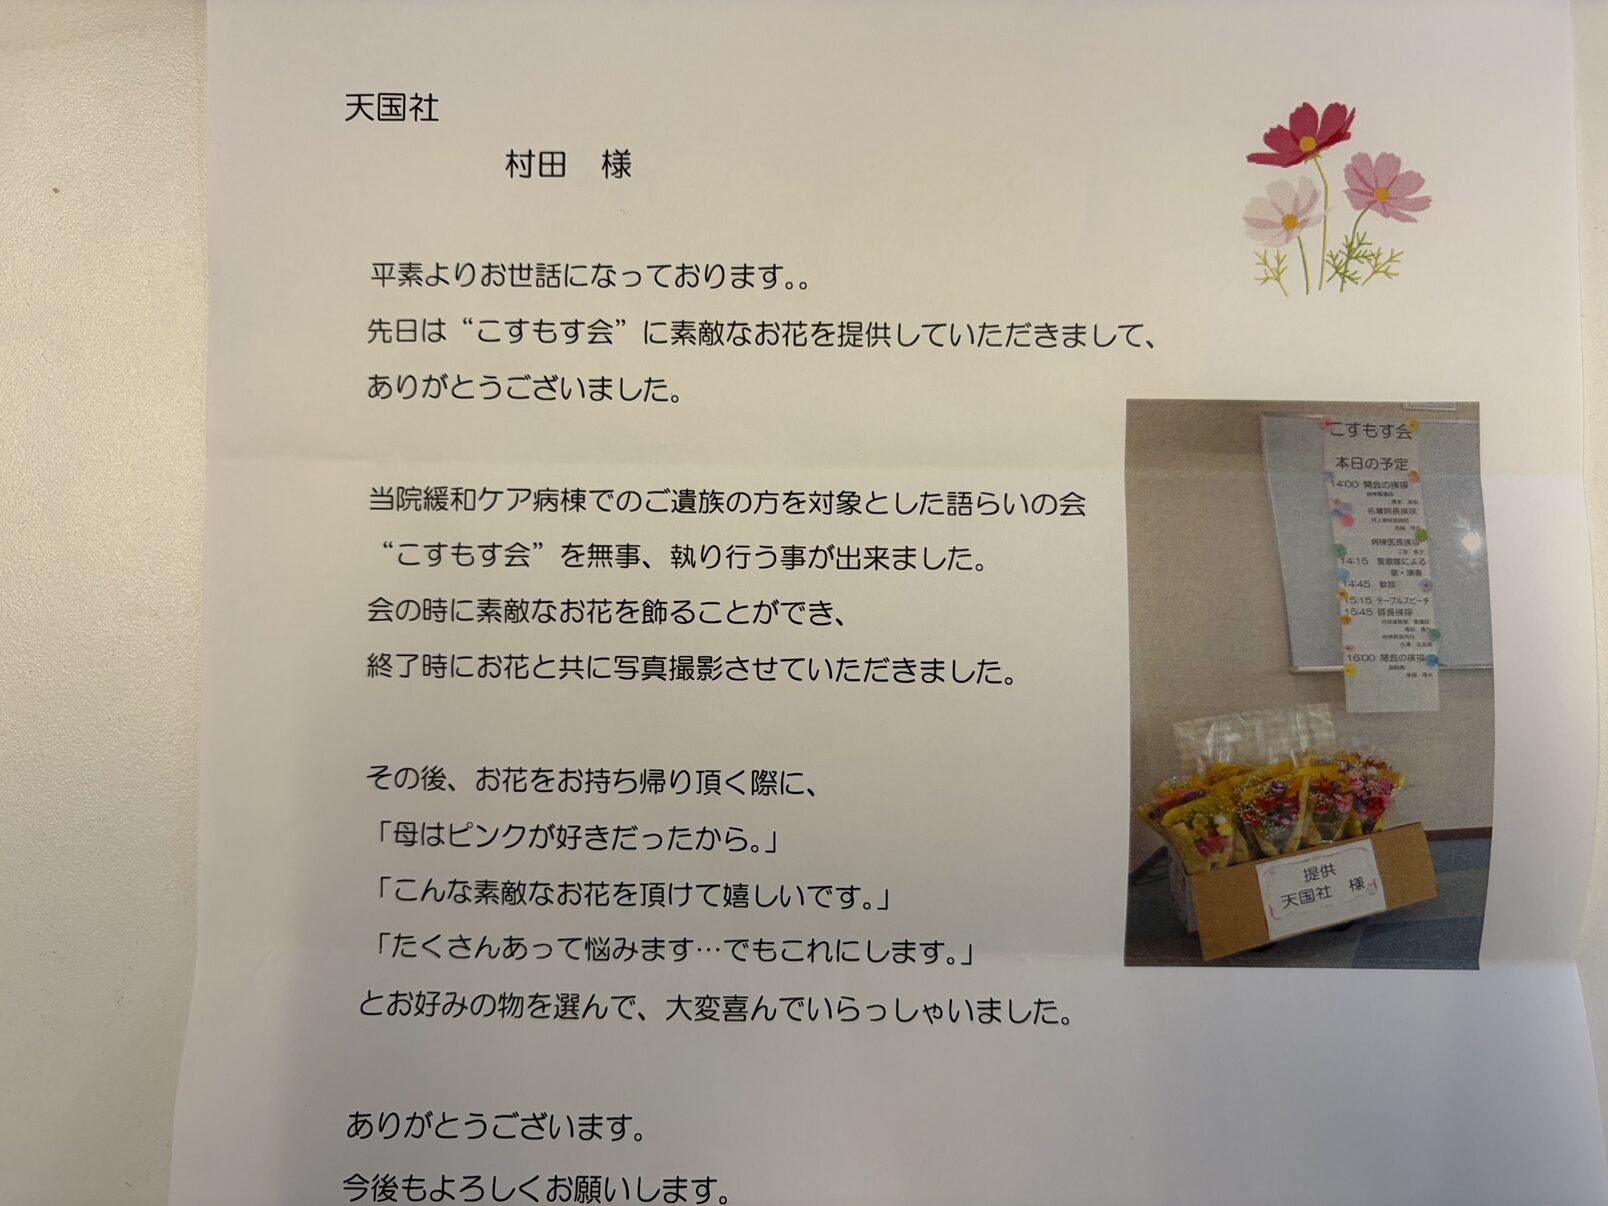 天国社
村田　様
平素よりお世話になっております。。
先日は“こすもす会”に素敵なお花を提供していただきまして、
ありがとうございました。
当院緩和ケア病棟でのご遺族の方を対象とした語らいの会
“こすもす会”を無事、執り行う事が出来ました。
会の時に素敵なお花を飾ることができ、
終了時にお花と共に写真撮影させていただきました。
その後、お花をお持ち帰り頂く際に、
「母はピンクが好きだったから。」
「こんな素敵なお花を頂けて嬉しいです。」
「たくさんあって悩みます…でもこれにします。」
とお好みの物を選んで、大変喜んでいらっしゃいました。
ありがとうございます。
今後もよろしくお願いします。
こすもす会
本日の予定
14:00 開会の挨拶
名誉院長挨拶
病棟医長挨拶
14:15 聖歌隊による
歌・演奏
14:45 歓談
15:15 テーブルスピーチ
15:45 師長挨拶
16:00 閉会の挨拶
提供
天国社　様